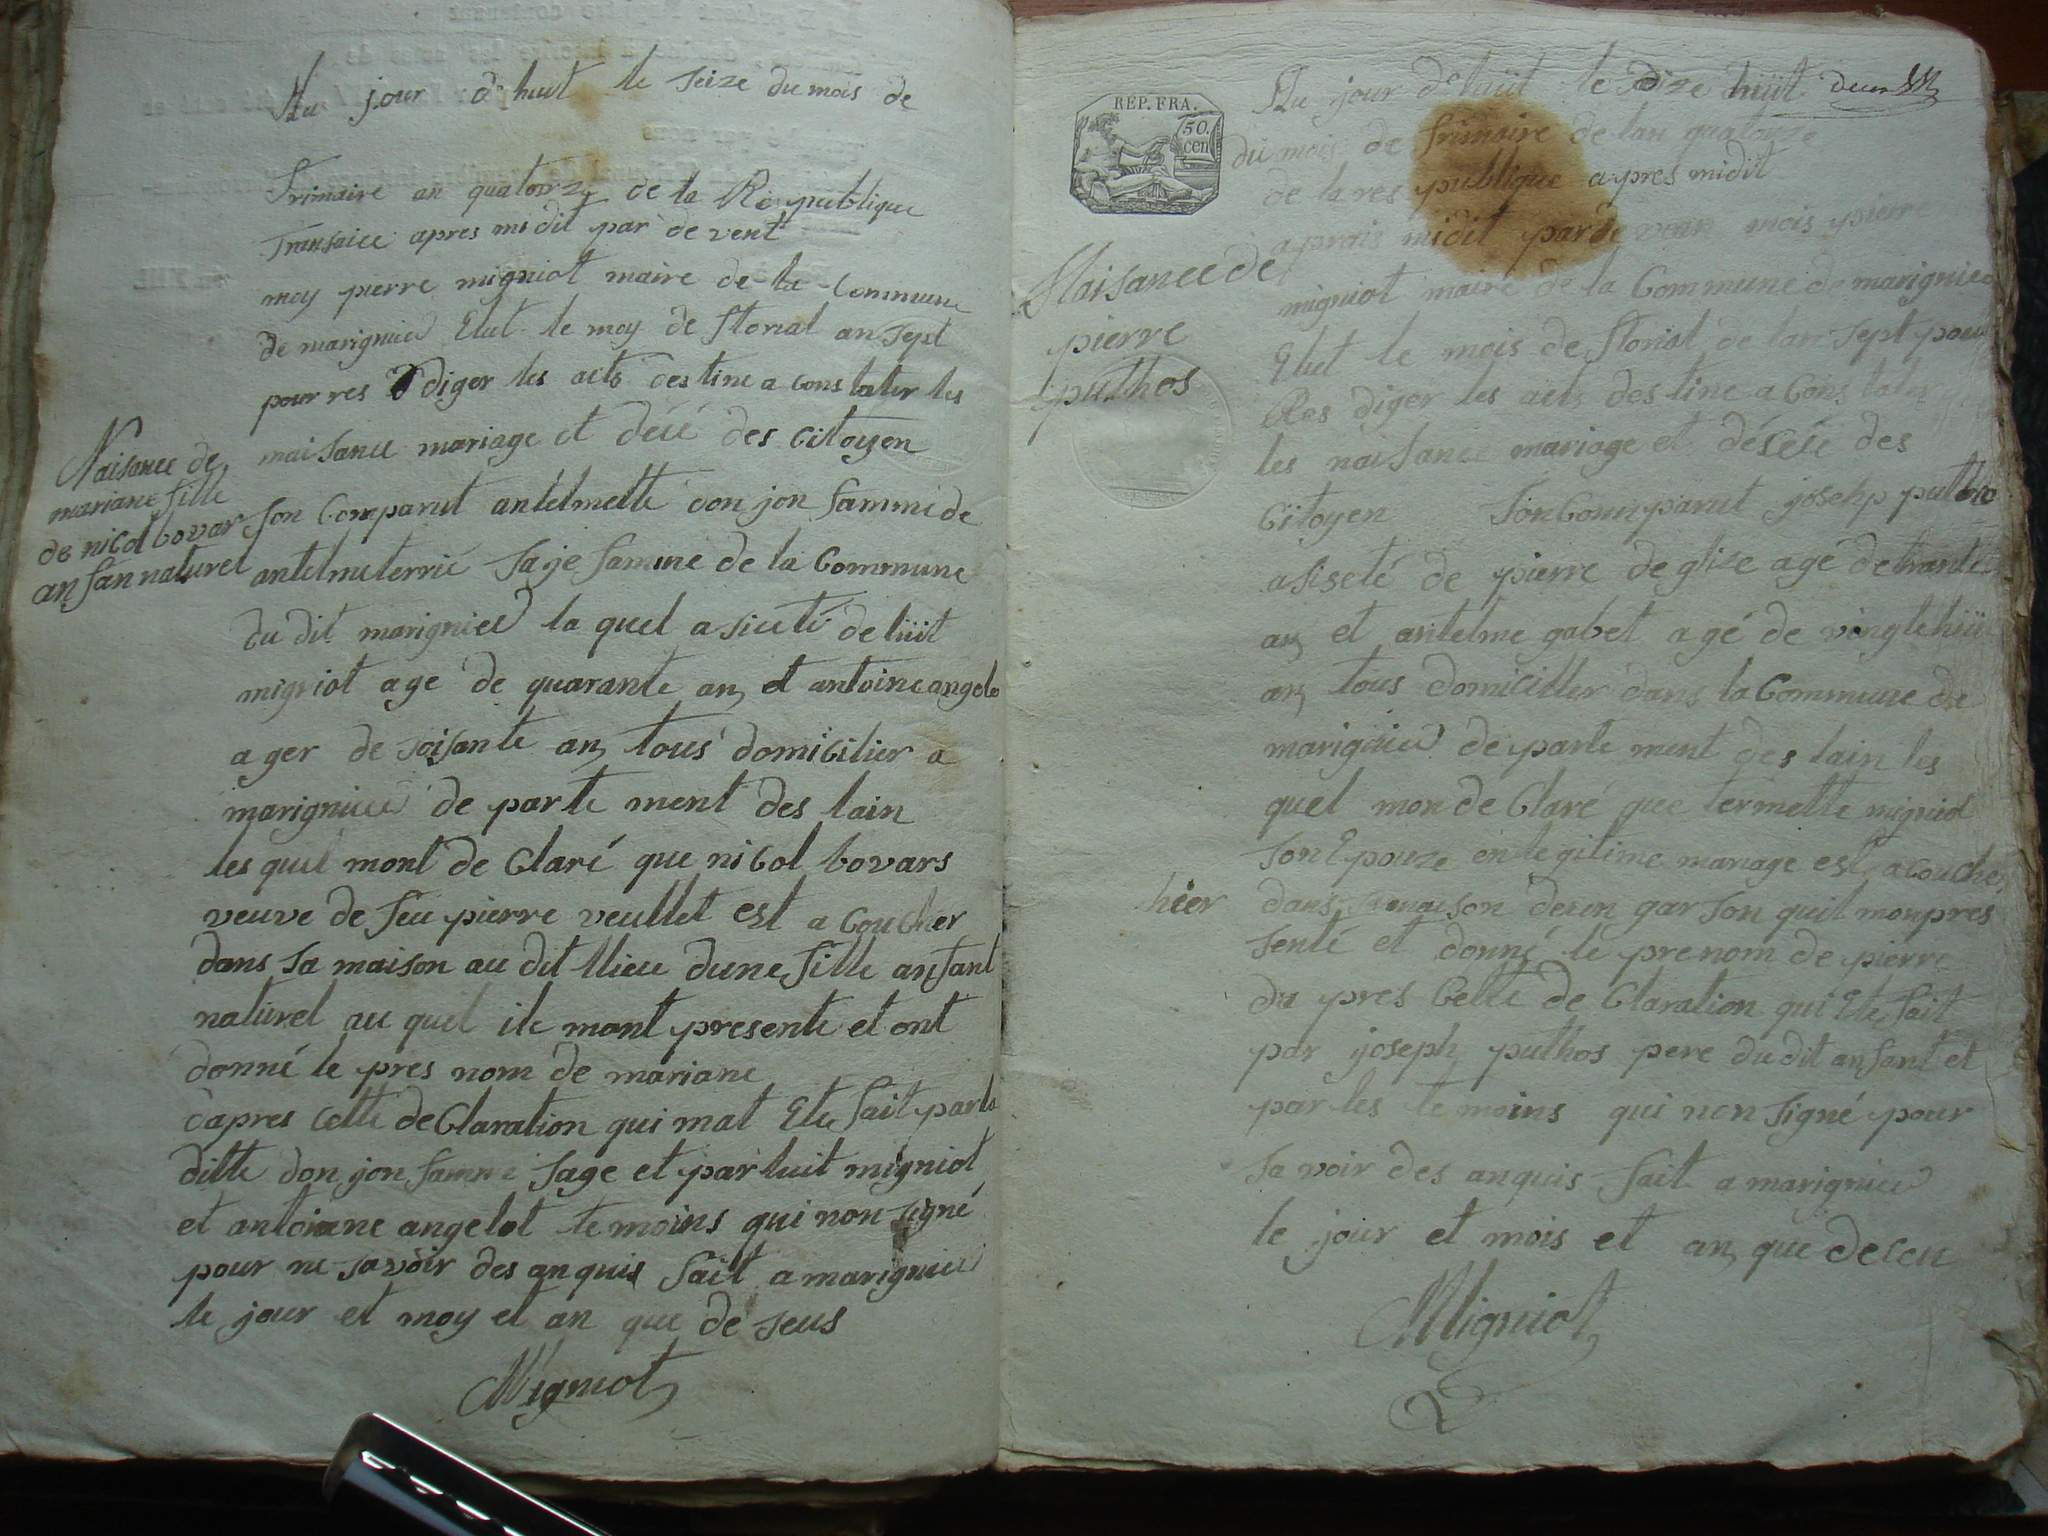 Au jour d'huit le seize du mois de
frimaire an quatorze de la Republique
fransaice apres midit par de vent
moy pierre migniot maire de la Commune
de marignieu Elut le moy de florial an sept
pour res diger les acts destine a conslater les
naisance mariage et décé des citoyen
Naisance de
mariane fille
de nicol bovar
anfan naturel
son Comparut antelmette don jon fammi de
antelme terrié saje famme de la Commune
du dit marignieu la quel a sisté de luit
migniot age de quarante an et antoine angelo
ager de soisante an tous domicilier a
marignieu de parte ment des lain
les quel mont de Claré que nicol bovars
veuve de feu pierre veullet est a Coucher
dans sa maison au dit llieu dune fille anfant
naturel au quel ile mont presente et ont
donné le pres nom de mariane
dapres cette de Claration qui mat Ete fait parla
ditte don jon famme sage et par luit migniot
et antoine angelot temoins qui non signé
pour ne savoir des anquis fait a marignieu
le jour et moy et an que de seus
Migniot
REP. FRA.
50.
cen
Au jour d'huit le dize huit
du mois de frimaire de lan quatorze
de la res publique apres midit
aprais midit par de vean mois pierre
migniot maire de la Commune de marignieu
Elut le mois de floriol de lan sept pour
Res diger les acts destine a Cons later
les naisance mariage et décéé des
Citoyen son Comparut josehp puthos
asisté de pierre deglize age de trante
an et antelme gabet agé de vingt huit
an tous domiciller dans la Commune de
marignieu de parte ment des lain les
quel mon de Claré que termette migniot
son Epouze en legitime mariage est acouche
hier dans sa maison deun garson quil mon pres
senté et donné le prenom de pierre
Naisance de
pierre
puthos
da pres Cette de Claration qui Ete fait
par joseph puthos pere du dit anfant et
par les temoins qui non signé pour
sa voir des anquis fait a marignieu
le jour et mois et an que deceu
Migniot